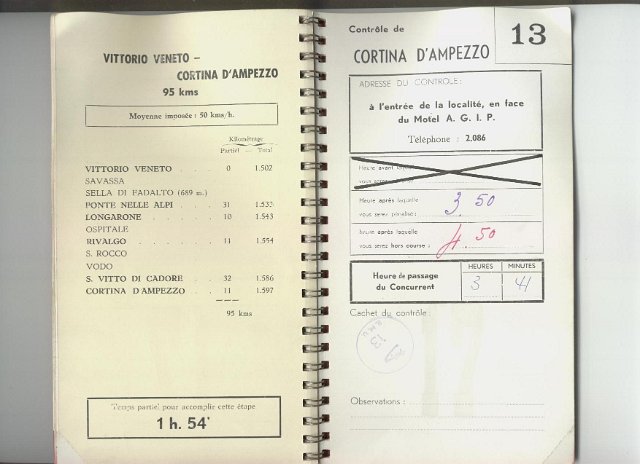 VITTORIO VENETO –
CORTINA D'AMPEZZO
95 kms
Moyenne imposée : 50 kms/h.
Kilométrage
Partiel - Total
VITTORIO VENETO . . . 0 1.502
SAVASSA
SELLA DI FADALTO (689 m.)
PONTE NELLE ALPI . . . 31 1.533
LONGARONE . . . . 10 1.543
OSPITALE
RIVALGO . . . . 11 1.554
S. ROCCO
VODO
S. VITTO DI CADORE . . . 32 1.586
CORTINA D'AMPEZZO . . . 11 1.597
95 kms
Temps partiel pour accomplir cette étape
1 h. 54'
Contrôle de
13
CORTINA D'AMPEZZO
ADRESSE DU CONTROLE :
à l'entrée de la localité, en face
du Motel A. G. I. P.
Téléphone : 2.086
Heure avant laquelle
vous serez
Heure après laquelle
vous serez pénalisé :
3. 50
heure après laquelle
vous serez hors course :
4. 50
Heure de passage
du Concurrent
HEURES MINUTES
3 41
Cachet du contrôle :
13
Observations :